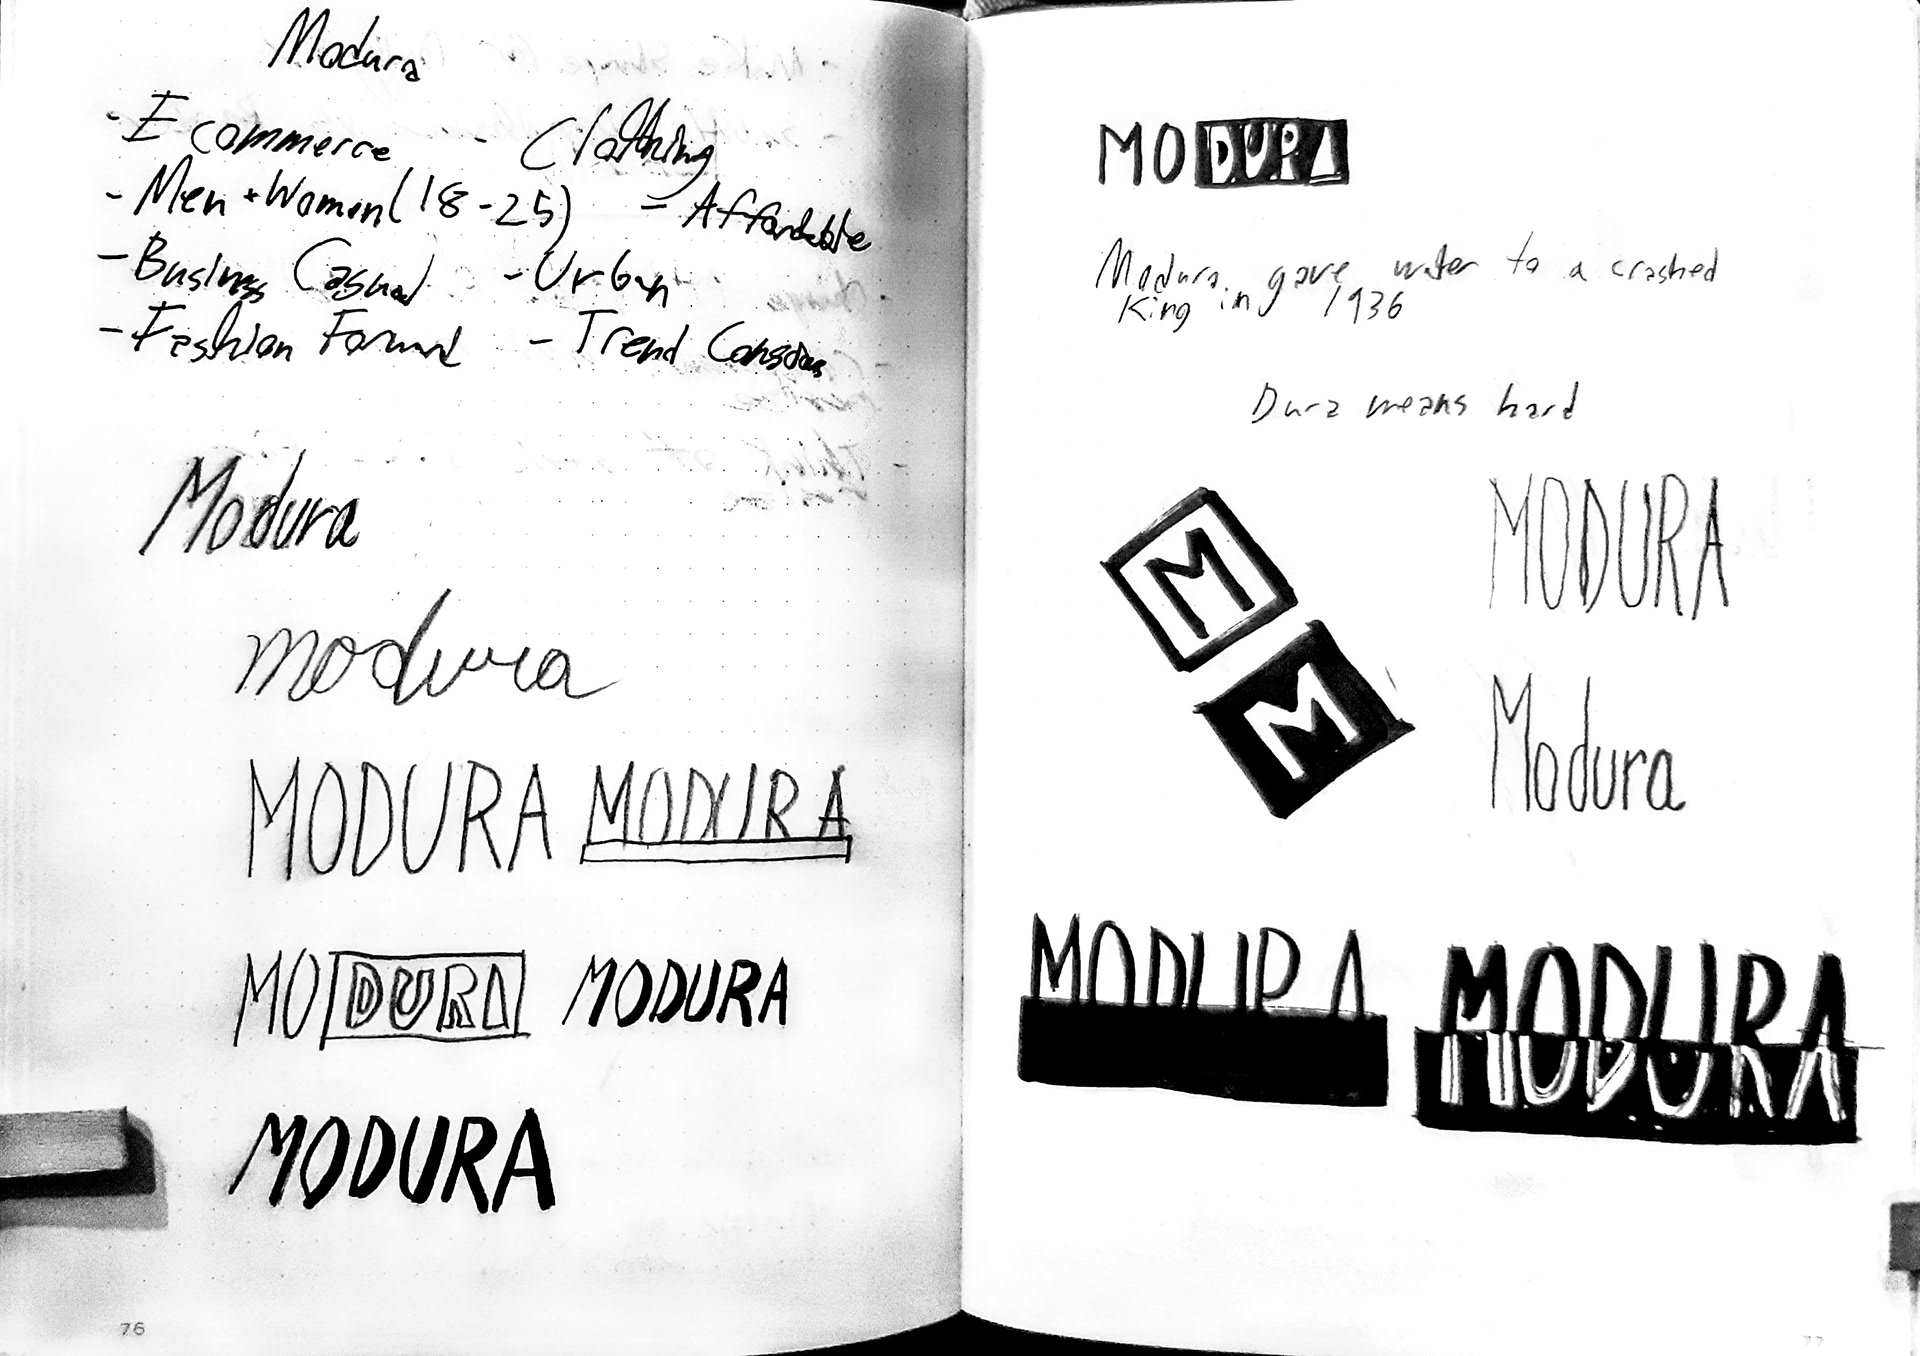 Modura
- Ecommerce - Clothing
- Men + Women (18-25) - Affordable
- Business Casual - Urban
- Fashion Forward - Trend Conscious
Modura
modura
MODURA MODURA
MODURA MODURA
MODURA
76
MODURA
Modura gave water to a crashed
King in 1936
Dura means hard
M
M
MODURA
Modura
MODURA MODURA
77